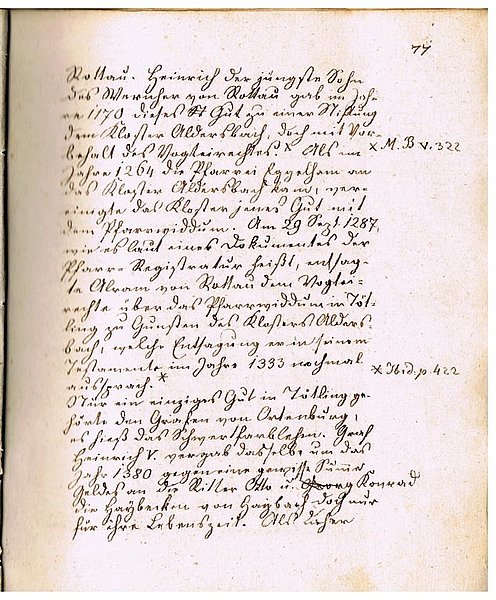 77
Rottau. Heinrich der jüngste Sohn
des Wernher von Rottau gab im Jah-
re 1170 dieses Gut zu einer Stiftung
dem Kloster Aldersbach, doch mit Vor-
behalt des Vogteirechtes. × Als im
× M. B V. 322
Jahre 1264 die Pfarrei Eggelham an
das Kloster Aldersbach kam, ver-
einigte das Kloster jenes Gut mit
dem Pfarrwiddum. Am 29 Sept. 1287,
wie es laut eines Dokumentes der
Pfarr-Registratur heißt, entsag-
te Alram von Rottau dem Vogtei-
rechte über das Pfarrwiddum in Töt-
ling zu Gunsten des Klosters Alders-
bach, welche Entsagung er in seinem
Testamente im Jahre 1333 nochmal
aussprach. ×
× Ibid. p. 422
Nur ein einziges Gut in Tötling ge-
hörte den Grafen von Ortenburg,
es hieß das Schwertfarblehen. Graf
Heinrich V. vergab dasselbe um das
Jahr 1380 gegen eine gewisse Summe
Geldes an die Ritter Otto u. Georg Konrad
die Haybecken von Haybach doch nur
für ihre Lebenszeit. Als daher